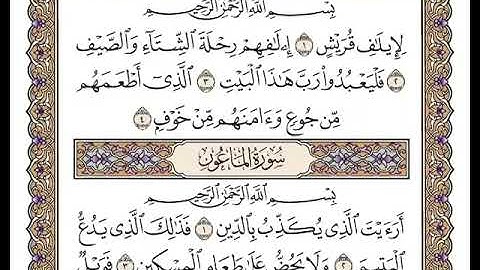 بِسْمِ ٱللَّهِ ٱلرَّحْمَٰنِ ٱلرَّحِيمِ
لِإِيلَٰفِ قُرَيْشٍ ١ إِۦلَٰفِهِمْ رِحْلَةَ ٱلشِّتَآءِ وَٱلصَّيْفِ
٢ فَلْيَعْبُدُوا۟ رَبَّ هَٰذَا ٱلْبَيْتِ ٣ ٱلَّذِىٓ أَطْعَمَهُم
مِّن جُوعٍ وَءَامَنَهُم مِّنْ خَوْفٍۭ ٤
سُورَةُ ٱلْمَاعُونِ
بِسْمِ ٱللَّهِ ٱلرَّحْمَٰنِ ٱلرَّحِيمِ
أَرَءَيْتَ ٱلَّذِى يُكَذِّبُ بِٱلدِّينِ ١ فَذَٰلِكَ ٱلَّذِى يَدُعُّ
ٱلْيَتِيمَ ٢ وَلَا يَحُضُّ عَلَىٰ طَعَامِ ٱلْمِسْكِينِ ٣ فَوَيْلٌ